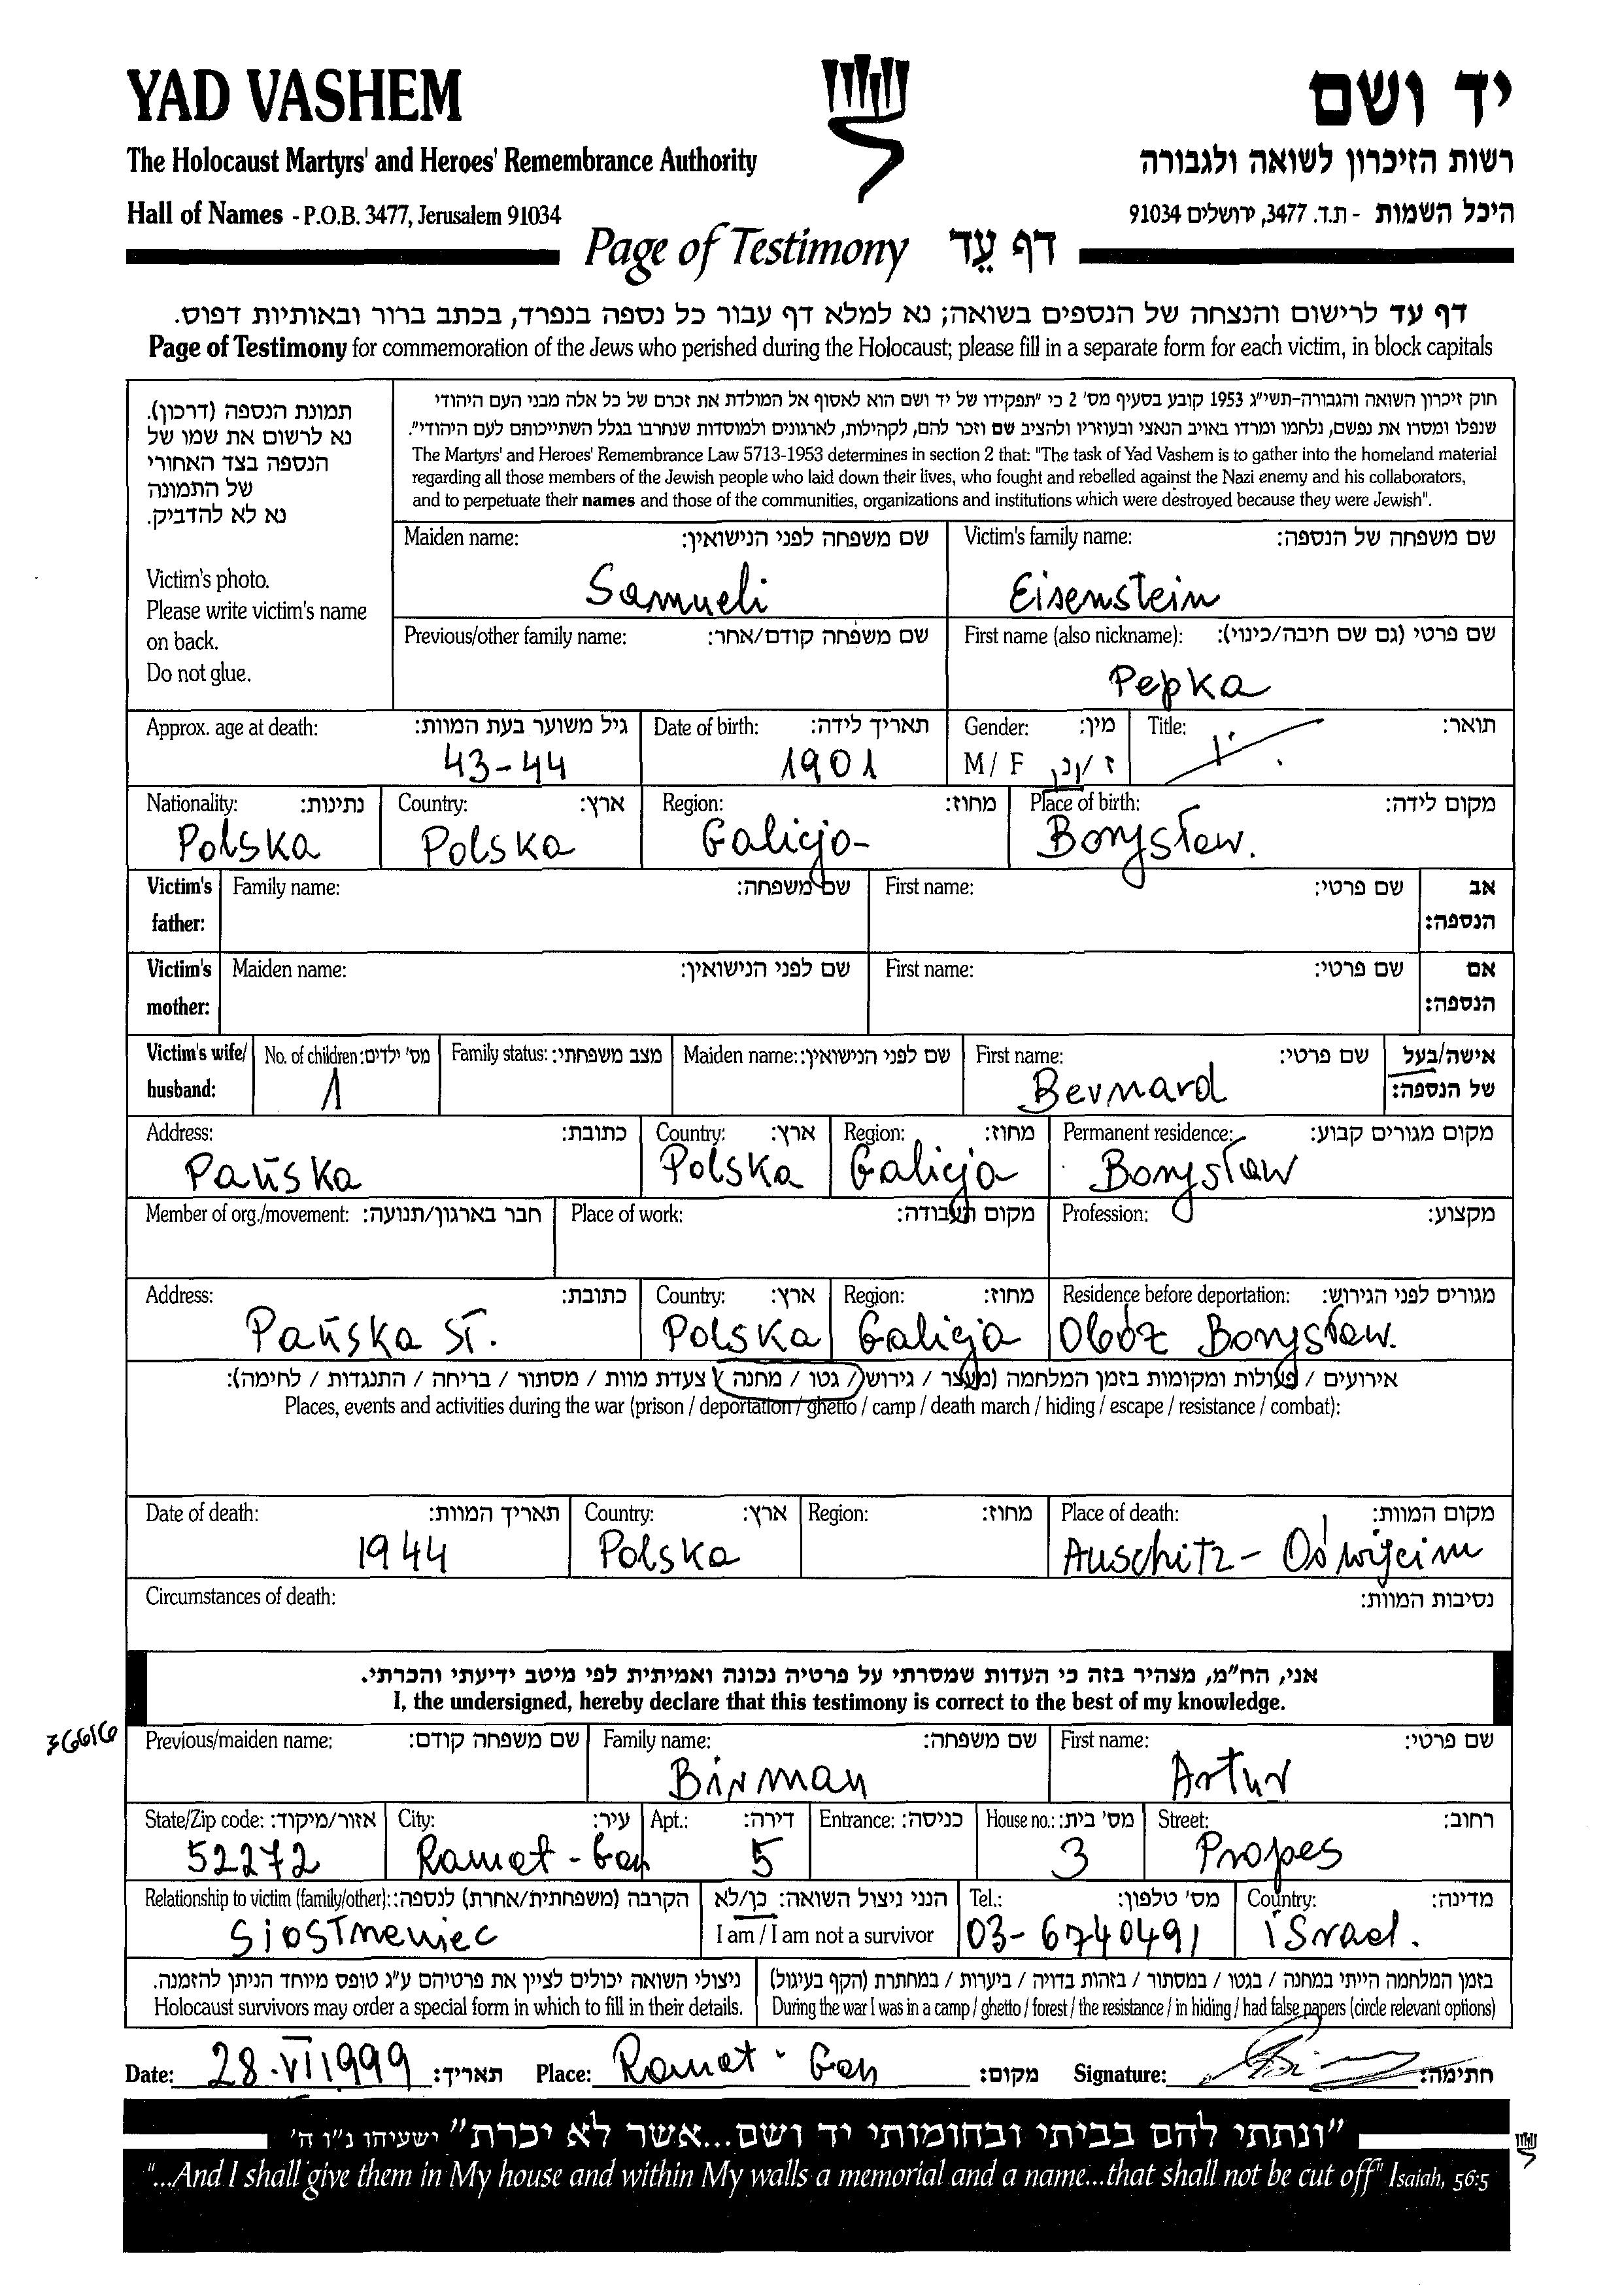 YAD VASHEM
יד ושם
The Holocaust Martyrs' and Heroes' Remembrance Authority
רשות הזיכרון לשואה ולגבורה
Hall of Names - P.O.B. 3477, Jerusalem 91034
היכל השמות - ת.ד. 3477, ירושלים 91034
Page of Testimony דף עֵד
דף עד לרישום והנצחה של הנספים בשואה; נא למלא דף עבור כל נספה בנפרד, בכתב ברור ובאותיות דפוס.
Page of Testimony for commemoration of the Jews who perished during the Holocaust; please fill in a separate form for each victim, in block capitals
תמונת הנספה (דרכון).
נא לרשום את שמו של
הנספה בצד האחורי
של התמונה
נא לא להדביק.
Victim's photo.
Please write victim's name
on back.
Do not glue.
חוק זיכרון השואה והגבורה-תשי"ג 1953 קובע בסעיף מס' 2 כי "תפקידו של יד ושם הוא לאסוף אל המולדת את זכרם של כל אלה מבני העם היהודי
שנפלו ומסרו את נפשם, נלחמו ומרדו באויב הנאצי ובעוזריו ולהציב שם וזכר להם, לקהילות, לארגונים ולמוסדות שנחרבו בגלל השתייכותם לעם היהודי".
The Martyrs' and Heroes' Remembrance Law 5713-1953 determines in section 2 that: "The task of Yad Vashem is to gather into the homeland material
regarding all those members of the Jewish people who laid down their lives, who fought and rebelled against the Nazi enemy and his collaborators,
and to perpetuate their names and those of the communities, organizations and institutions which were destroyed because they were Jewish".
Maiden name: שם משפחה לפני הנישואין: Victim's family name: שם משפחה של הנספה:
Samueli Eisenstein
Previous/other family name: שם משפחה קודם/אחר: First name (also nickname): שם פרטי (גם שם חיבה/כינוי):
Pepka
Approx. age at death: גיל משוער בעת המוות: Date of birth: תאריך לידה: Gender: מין: Title: תואר:
43-44 1901 M / F ז /נק
Nationality: נתינות: Country: ארץ: Region: מחוז: Place of birth: מקום לידה:
Polska Polska Galicja Borysław.
Victim's father: Family name: שם משפחה: First name: שם פרטי: אב הנספה:
Victim's mother: Maiden name: שם לפני הנישואין: First name: שם פרטי: אם הנספה:
Victim's wife/ husband: No. of children: מס' ילדים: Family status: מצב משפחתי: Maiden name: שם לפני הנישואין: First name: שם פרטי: אישה/בעל של הנספה:
1 Bernard
Address: כתובת: Country: ארץ: Region: מחוז: Permanent residence: מקום מגורים קבוע:
Pańska Polska Galicja Borysław
Member of org./movement: חבר בארגון/תנועה: Place of work: מקום העבודה: Profession: מקצוע:
Address: כתובת: Country: ארץ: Region: מחוז: Residence before deportation: מגורים לפני הגירוש:
Pańska St. Polska Galicja Obóz Borysław.
אירועים / פעולות ומקומות בזמן המלחמה (מעצר / גירוש / גטו / מחנה / צעדת מוות / מסתור / בריחה / התנגדות / לחימה):
Places, events and activities during the war (prison / deportation / ghetto / camp / death march / hiding / escape / resistance / combat):
Date of death: תאריך המוות: Country: ארץ: Region: מחוז: Place of death: מקום המוות:
1944 Polska Auschitz - Oświęcim
Circumstances of death: נסיבות המוות:
אני, הח"מ, מצהיר בזה כי העדות שמסרתי על פרטיה נכונה ואמיתית לפי מיטב ידיעתי והכרתי.
I, the undersigned, hereby declare that this testimony is correct to the best of my knowledge.
36616
Previous/maiden name: שם משפחה קודם: Family name: שם משפחה: First name: שם פרטי:
Birman Artur
State/Zip code: אזור/מיקוד: City: עיר: Apt.: דירה: Entrance: כניסה: House no.: מס' בית: Street: רחוב:
52272 Ramat-Gan 5 3 Propes
Relationship to victim (family/other): הקרבה (משפחתית/אחרת) לנספה: הנני ניצול השואה: כן/לא Tel.: מס' טלפון: Country: מדינה:
Siostrzeniec I am / I am not a survivor 03-6740491 israel.
ניצולי השואה יכולים לציין את פרטיהם ע"ג טופס מיוחד הניתן להזמנה. בזמן המלחמה הייתי במחנה / בגטו / במסתור / בזהות בדויה / ביערות / במחתרת (הקף בעיגול)
Holocaust survivors may order a special form in which to fill in their details. During the war I was in a camp / ghetto / forest / the resistance / in hiding / had false papers (circle relevant options)
Date: 28.VI 1999 תאריך: Place: Ramat-Gan מקום: Signature: חתימה:
"ונתתי להם בביתי ובחומותי יד ושם...אשר לא יכרת" ישעיהו נ"ו ה'
"...And I shall give them in My house and within My walls a memorial and a name...that shall not be cut off" Isaiah, 56:5